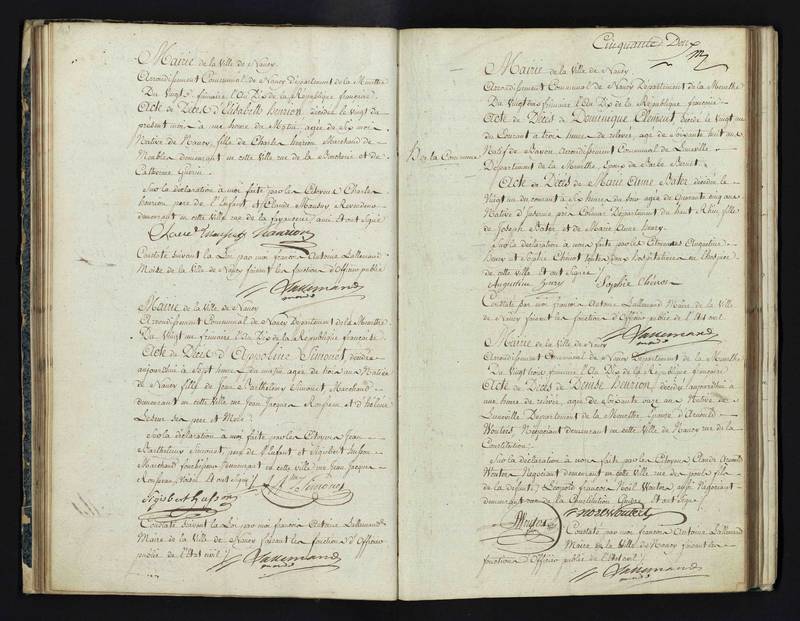 Mairie de la Ville de Nancy
Arrondissement Communal de Nancy Département de la Meurthe
Du Vingt frimaire l'An Dix de la République française
Acte de Décès d'Elisabeth henrion décédée le vingt du
présent mois à une heure du Matin, agée de six mois
Native de Nancy, fille de Charles henrion Marchand de
Meubles demeurant en cette Ville rue de la Boucherie et de
Catherine Guerin
Sur la déclaration à moi faite par les Citoyens Charles
henrion pere de l'Enfant et Claude Revendeur
demeurant en cette Ville rue de la fayencerie, qui ont Signé
Claude henrion
Constaté Suivant la Loi par moi françois Antoine Lallemand
Maire de la Ville de Nancy faisant les fonctions d'Officier public
Lallemand
Mairie de la Ville de Nancy
Arrondissement Communal de Nancy Département de la Meurthe
Du Vingt un frimaire l'An Dix de la République française
Acte de Décès d'Appoline Simouët, décédée
aujourd'hui à Sept heures du matin, agée de trois ans Native
de Nancy fille de Jean Barthelemy Simouet Marchand
demeurant en cette Ville rue Jean Jacques Rousseau et d'hélène
ses père et Mère
Sur la déclaration à moi faite par les Citoyens Jean
Barthelemy Simouet, père de l'Enfant et Sigisbert husson
Marchand demeurant en cette Ville rue Jean Jacques
Rousseau, Voisin et ont Signé
Sigisbert husson Simouet
Constaté Suivant la Loi par moi françois Antoine Lallemand
Maire de la Ville de Nancy faisant les fonctions d'Officier
public de l'Etat civil
Lallemand
Cinquante Deux
Mairie de la Ville de Nancy
Arrondissement Communal de Nancy Département de la Meurthe
Du Vingt deux frimaire l'An Dix de la République française
Acte de Décès de Dominique Clement, décédé le Vingt un
du Courant à trois heures de relevée, agé de Soixante huit ans
Natif de Bayon Arrondissement Communal de Luneville
hors de la Commune
Département de la Meurthe, Epoux de Barbe
Acte de Décès de Marie Anne décédée le
Vingt un du courant à Six heures du Soir agée de quarante cinq ans
Native d' près Colmar Département du haut Rhin, fille
de Joseph et de Marie Anne henry
Sur la déclaration à moi faite par les Citoyennes Augustine
henry et Sophie hospitalieres en l'hospice
de cette Ville et ont Signé
Augustine henry Sophie
Constaté par moi françois Antoine Lallemand Maire de la Ville
de Nancy faisant les fonctions d'Officier public de l'Etat civil
Lallemand
Mairie de la Ville de Nancy
Arrondissement Communal de Nancy Département de la Meurthe
Du Vingt trois frimaire l'An Dix de la République française
Acte de Décès de Denise henrion, décédée aujourd'hui à
une heure de relevée, agée de Soixante onze ans Native de
Luneville Département de la Meurthe Epouse d'
Wouters, Négociant demeurant en cette Ville de Nancy rue de la
Constitution
Sur la déclaration à moi faite par les Citoyens Claude
Wouters Negociant demeurant en cette Ville rue fils
de la defunte, et Léopold françois Noël Wouters aussi Negociant
demeurant rue de la Constitution et ont Signé
Wouters noel Wouters
Constaté par moi françois Antoine Lallemand
Maire de la Ville de Nancy faisant les
fonctions d'Officier public de l'Etat civil
Lallemand